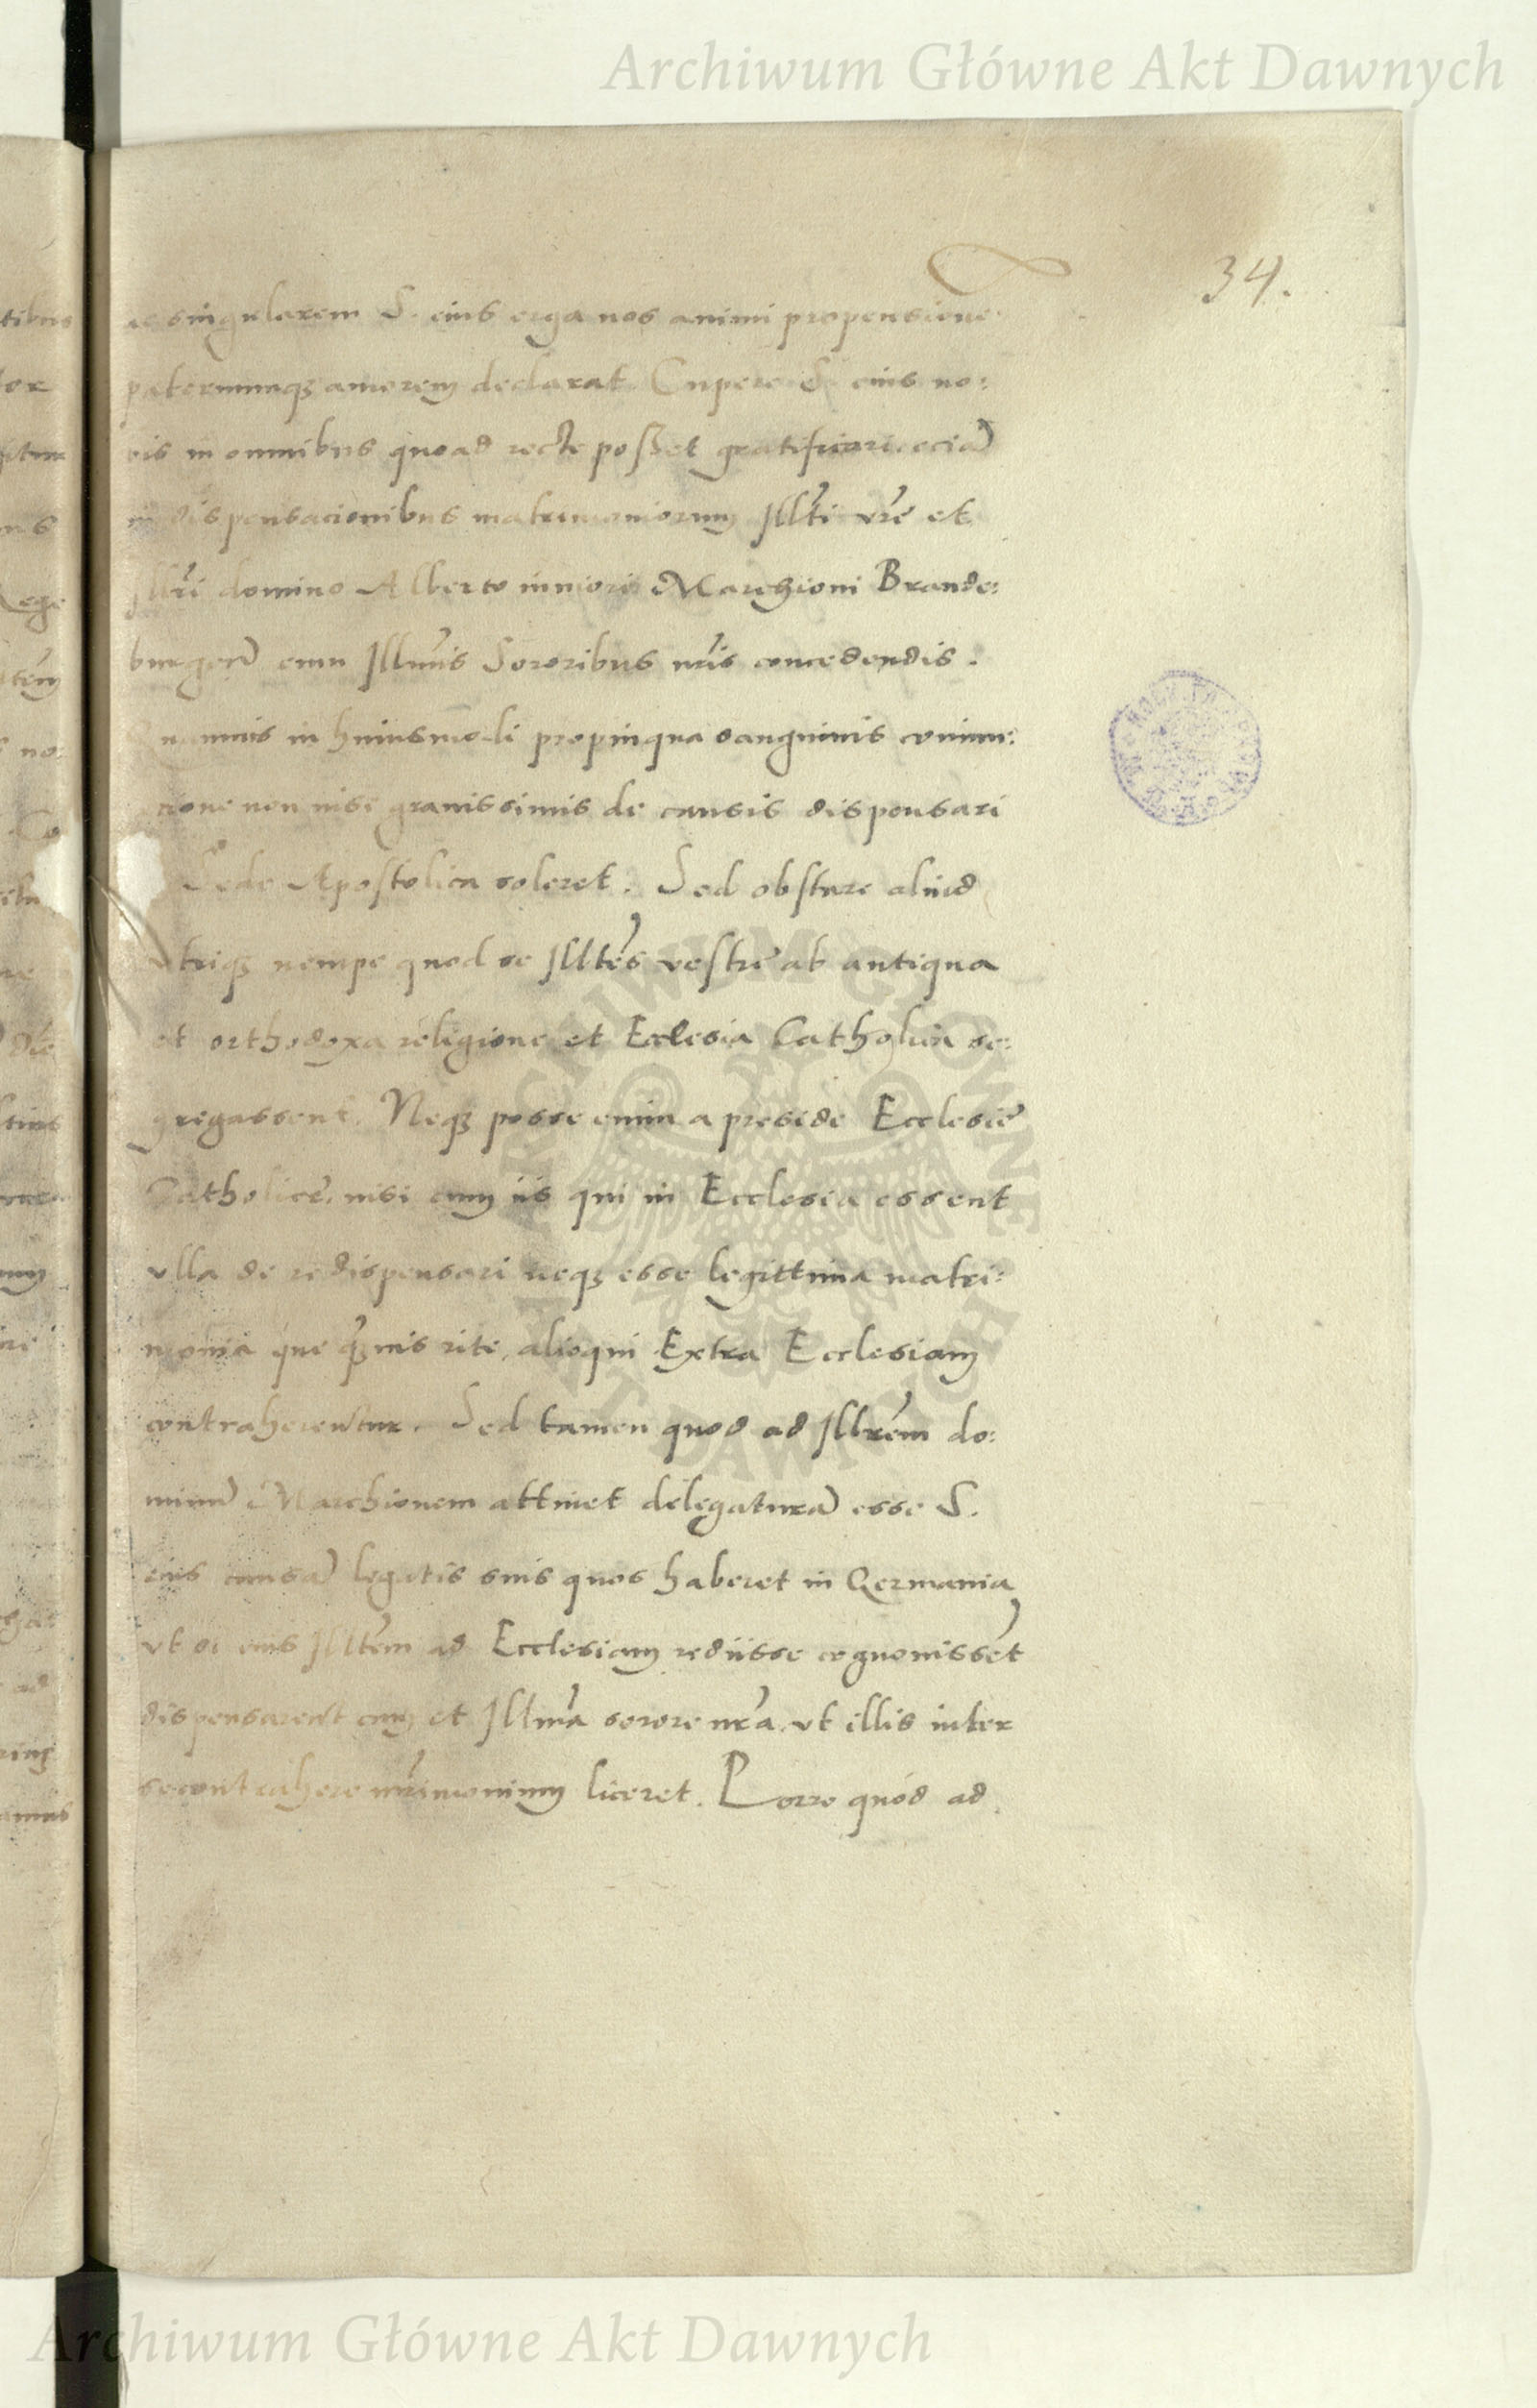 Archiwum Główne Akt Dawnych
34.
ac singularem S. eius erga nos animi propensione
paternumqꝫ amorem declarat. Cupere S. eius no:
bis in omnibus quoad recte posset gratificari. eciā
in dispensacionibus matrimoniorum Illti vrē et
Illri domino Alberto iuniori Marchioni Brande:
burgeñ cum Illmis Sororibus nris concedendis.
Quamuis in huiusmodi propinqua sanguinis coniun:
ctione non nisi grauissimis de causis dispensari
Sede Apostolica soleret. Sed obstare aliud
vtriqꝫ nempe quod se Illtes vestrę ab antiqua
et orthodoxa religione et Ecclesia Catholica se:
gregassent. Neqꝫ posse enim a preside Ecclesię
Catholicę. nisi cum iis qui in Ecclesia essent
vlla de re dispensari neqꝫ esse legittima matri:
monia que qꝫuis rite, alioqui Extra Ecclesiam
contraherentur. Sed tamen quod ad Illrem do:
minū Marchionem attinet delegaturā esse S.
eius causā legatis suis quos haberet in Germania
vt si eius Illtem ad Ecclesiam rediisse cognouissēt
dispensarent cum et Illma sorore nra. vt illis inter
se contrahere mrimonium liceret. Porro quod ad
Archiwum Główne Akt Dawnych